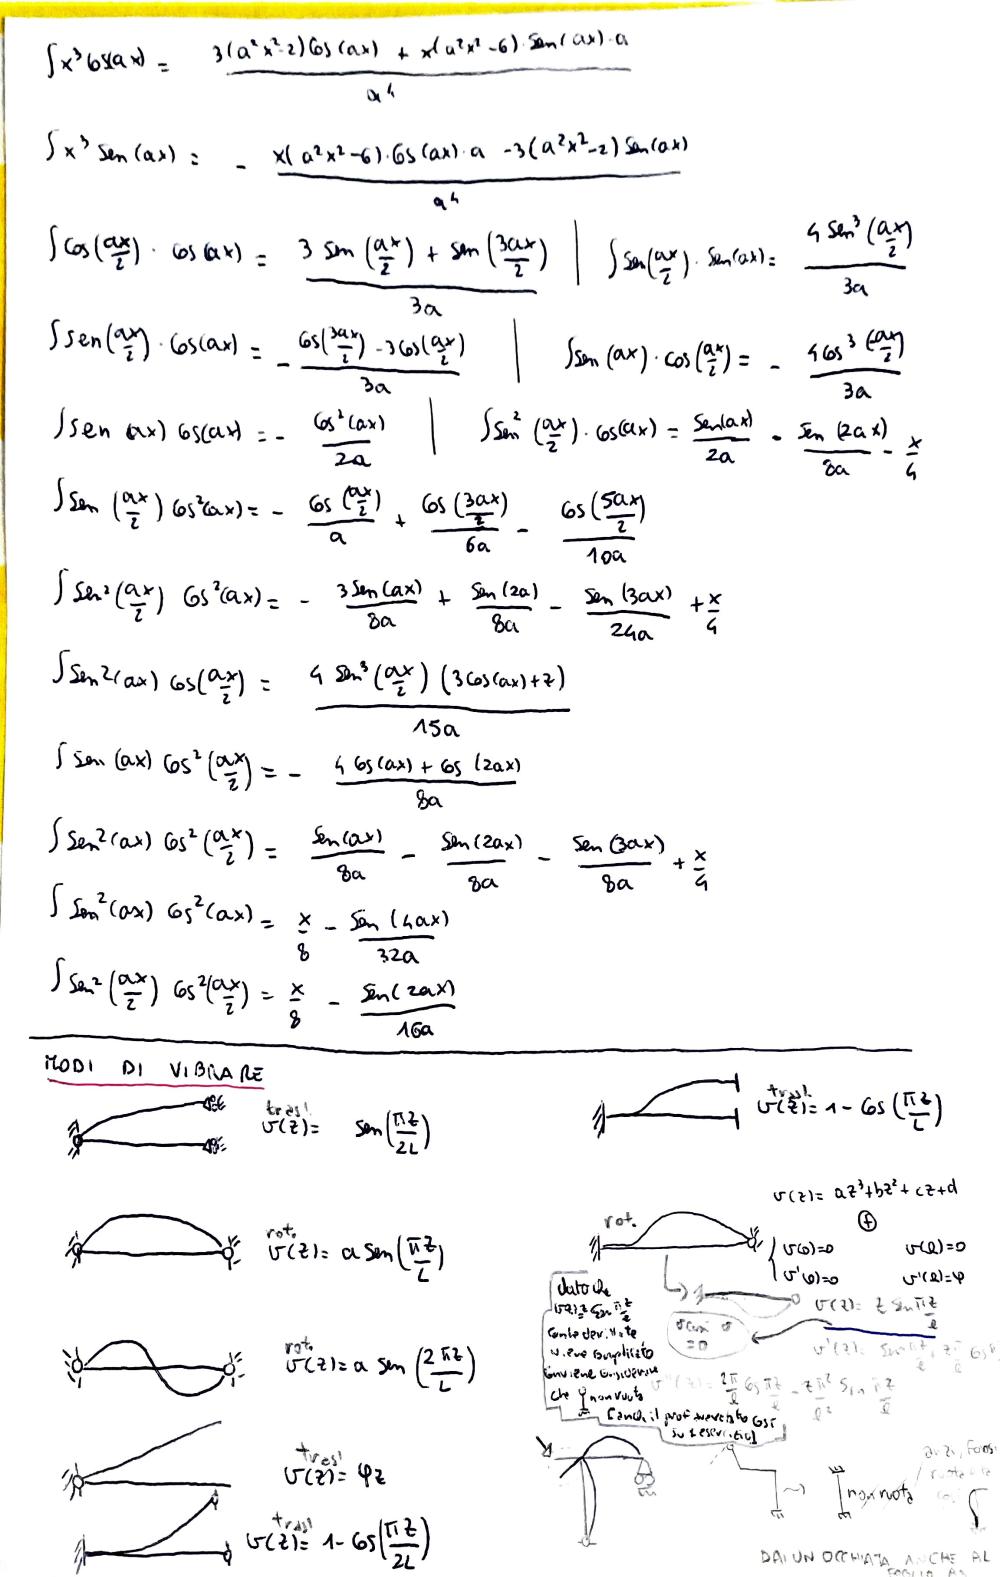 ∫x³ cos(ax) = 3(a²x²-2) cos(ax) + x(a²x²-6)·sen(ax)·a / a⁴
∫x³ sen(ax) = - x(a²x²-6)·cos(ax)·a -3(a²x²-2) sen(ax) / a⁴
∫cos(ax/2)·cos(ax) = 3 sen(ax/2) + sen(3ax/2) / 3a | ∫sen(ax/2)·sen(ax) = 4 sen³(ax/2) / 3a
∫sen(ax/2)·cos(ax) = - cos(3ax/2) -3cos(ax/2) / 3a | ∫sen(ax)·cos(ax/2) = - 4cos³(ax/2) / 3a
∫sen(ax) cos(ax) = - cos²(ax) / 2a | ∫sen²(ax/2)·cos(ax) = sen(ax)/2a - sen(2ax)/8a - x/4
∫sen(ax/2) cos²(ax) = - cos(ax/2)/a + cos(3ax/2)/6a - cos(5ax/2)/10a
∫sen²(ax/2) cos²(ax) = - 3sen(ax)/8a + sen(2a)/8a - sen(3ax)/24a + x/4
∫sen²(ax) cos(ax/2) = 4 sen³(ax/2) (3cos(ax)+2) / 15a
∫sen(ax) cos²(ax/2) = - 4cos(ax) + cos(2ax) / 8a
∫sen²(ax) cos²(ax/2) = sen(ax)/8a - sen(2ax)/8a - sen(3ax)/8a + x/4
∫sen²(ax) cos²(ax) = x/8 - sen(4ax)/32a
∫sen²(ax/2) cos²(ax/2) = x/8 - sen(2ax)/16a
MODI DI VIBRARE
trasl v(z)= sen(πz/2L)
trasl v(z)= 1-cos(πz/L)
v(z)= az³+bz²+cz+d
rot. v(z)= a sen(πz/L)
rot.
v(0)=0 v(l)=0
v'(0)=0 v'(l)=φ
v(z)= z sen πz/l
dato che
v(z)=z sen πz/l
con le derivate
viene complicato
conviene considerare
che non ruota
=0
rot. v(z)= a sen(2πz/L)
trasl v(z)= φz
non ruota
trasl v(z)= 1-cos(πz/2L)
DAI UN OCCHIATA ANCHE AL